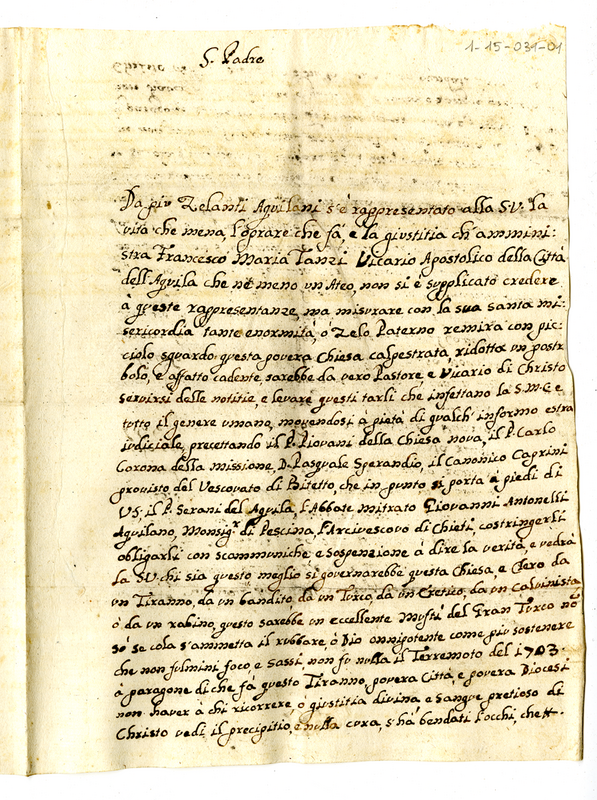 1-15-031-01
S. Padre
Da più Zelanti Aquilani s'è rappresentato alla S.V. la
vita che mena, l'oprare che fà, e la giustitia ch'ammini:
stra Francesco Maria Tanzi Vicario Apostolico della Città
dell'Aquila che nè meno un Ateo, non si è supplicato credere
à queste rappresentanze, ma misurare con la sua santa mi:
sericordia tante enormità, ò Zelo Paterno remira con pic:
ciolo sguardo questa povera Chiesa calpestrata, ridotta un postr
bolo, e affatto cadente, sarebbe da vero Pastore, e Vicario di Christo
servirsi delle notitie, e levare questi tarli che infettano la S.M.C. e
tutto il genere umano, movendosi à pietà di qualch'informo estra
iudiciale, precettando il P. Piovani della Chiesa nova, il P. Carlo
Corona della missione, D. Pasquale Sperandio, il Canonico Caprini
provisto del Vescovato di Bitetto, che in punto si porta à piedi di
V.S. il P. Serani del Aquila, l'Abbate mitrato Giovanni Antonelli
Aquilano, Monsig.r di Pescina, l'Arcivescovo di Chieti, costringerli
obligarli con scommuniche e sospenzione à dire la verità, e vedrà
la S.V. chi sia questo meglio si governarebbe questa Chiesa, e Clero da
un Tiranno, da un bandito, da un Turco, da un Eretico, da un Calvinista
ò da un rabino, questo sarebbe un eccellente Muftì del Gran Turco nõ
sò se cola s'ammetta il rubbare, ò Dio onnipotente come più sostenere
che non fulmini foco, e sassi, non fu nulla il Terremoto del 1703
à paragone di che fà questo Tiranno, povera Città, e povera Diocesi
non haver à chi ricorrere, ò giustitia divina, e sangue pretioso di
Christo vedi il precipitio, e nulla cura, s'hà bendati l'occhi, che